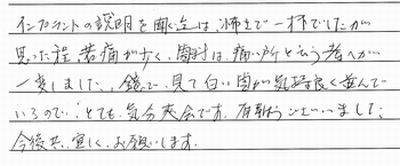 インプラントの説明を聞く迄は、怖さで一杯でしたが
思った程、苦痛が少く、歯科は、痛い所と云う考へが
一変しました、鏡で、見て白い歯が気持良く並んで
いるので、とても、気分爽会です。有難うございました、
今後共、宜しく、お願いします。